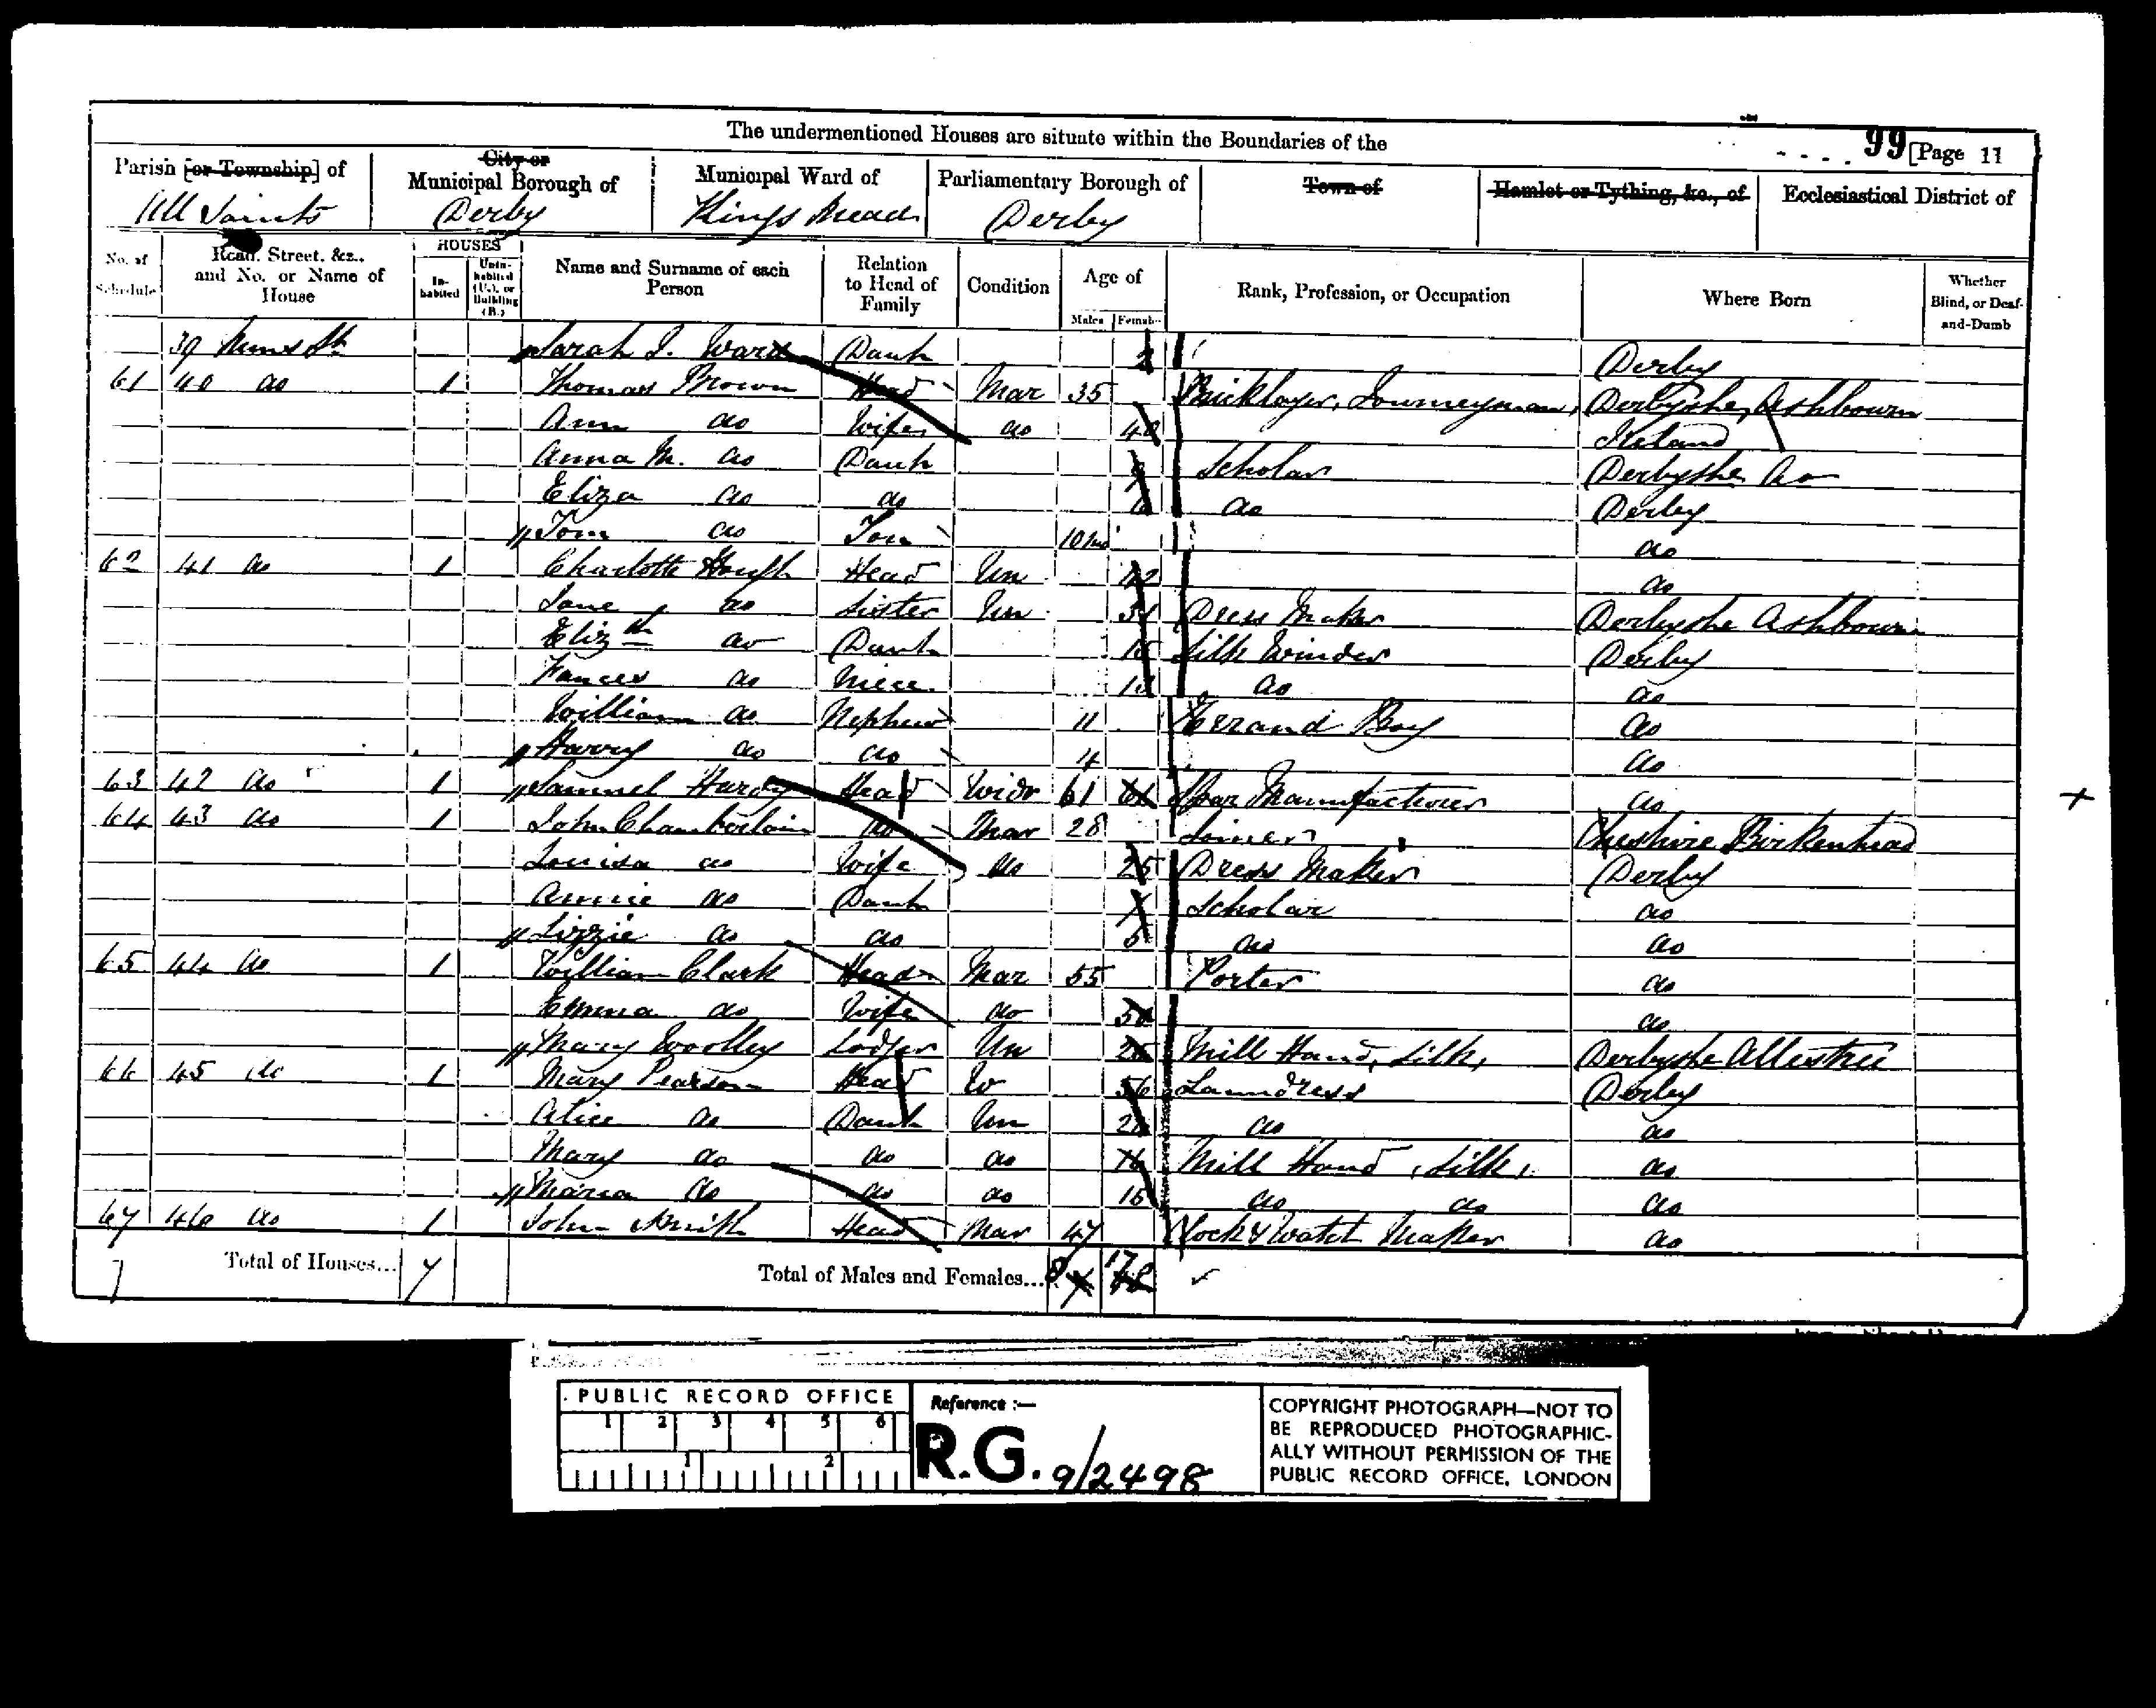 The undermentioned Houses are situate within the Boundaries of the
99 [Page 11
Parish [or Township] of
All Saints
City or Municipal Borough of
Derby
Municipal Ward of
Kings Mead
Parliamentary Borough of
Derby
Town of
Hamlet or Tything, &c., of
Ecclesiastical District of
No. of Schedule
Road, Street, &c., and No. or Name of House
HOUSES
In-habited
Unin-habited (U.), or Building (B.)
Name and Surname of each Person
Relation to Head of Family
Condition
Age of
Males
Females
Rank, Profession, or Occupation
Where Born
Whether Blind, or Deaf-and-Dumb
39 Nuns St Sarah J. Ward Daur 2 Derby
61 40 do 1 Thomas Brown Head Mar 35 Bricklayer, Journeyman, Derbyshe, Ashbourn
Ann do Wife do 40 Ireland
Anna M. do Daur Scholar Derbyshe do
Eliza do do do Derby
Tom do Son 10 mo do
62 41 do 1 Charlotte Hough Head Un 42 do
Jane do Sister Un 31 Dress Maker Derbyshe Ashbourn
Elizth do Daur 15 Silk Winder Derby
Frances do Niece 13 do do
William do Nephew 11 Errand Boy do
Harry do do 4 do
63 42 do 1 Samuel Hardy Head Widr 61 61 Spar Manufacturer do
64 43 do 1 John Chamberlain do Mar 28 Joiner Cheshire Birkenhead
Louisa do Wife do 25 Dress Maker Derby
Annie do Daur Scholar do
Lizzie do do 5 do do
65 44 do 1 William Clark Head Mar 55 Porter do
Emma do Wife do 50 do
Mary Woolley Lodger Un 25 Mill Hand, Silk, Derbyshe Allestree
66 45 do 1 Mary Pearson Head W 56 Laundress Derby
Alice do Daur Un do do
Mary do do do 16 Mill Hand, Silk, do
Maria do do do 15 do do do
67 46 do 1 John Smith Head Mar 47 Clock & Watch Maker do
7 Total of Houses... 7
Total of Males and Females... 8 17
PUBLIC RECORD OFFICE
1 2 3 4 5 6
1 2
Reference :—
R.G. 9/2498
COPYRIGHT PHOTOGRAPH—NOT TO
BE REPRODUCED PHOTOGRAPHIC-
ALLY WITHOUT PERMISSION OF THE
PUBLIC RECORD OFFICE, LONDON